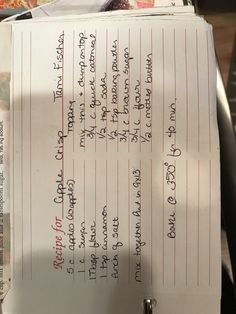 Recipe for Apple Crisp Tami Fischer
5 c apples (10 apples)
1 c sugar
1 Tbsp flour
1 tsp cinnamon
Pinch of salt
mix together. Put in 9x13
topping
mix this + dump on top
3/4 c quick oatmeal
1/2 tsp soda
1/2 tsp baking powder
3/4 c brown sugar
3/4 c flour
1/2 c melted butter
Bake @ 350° for 40 min.